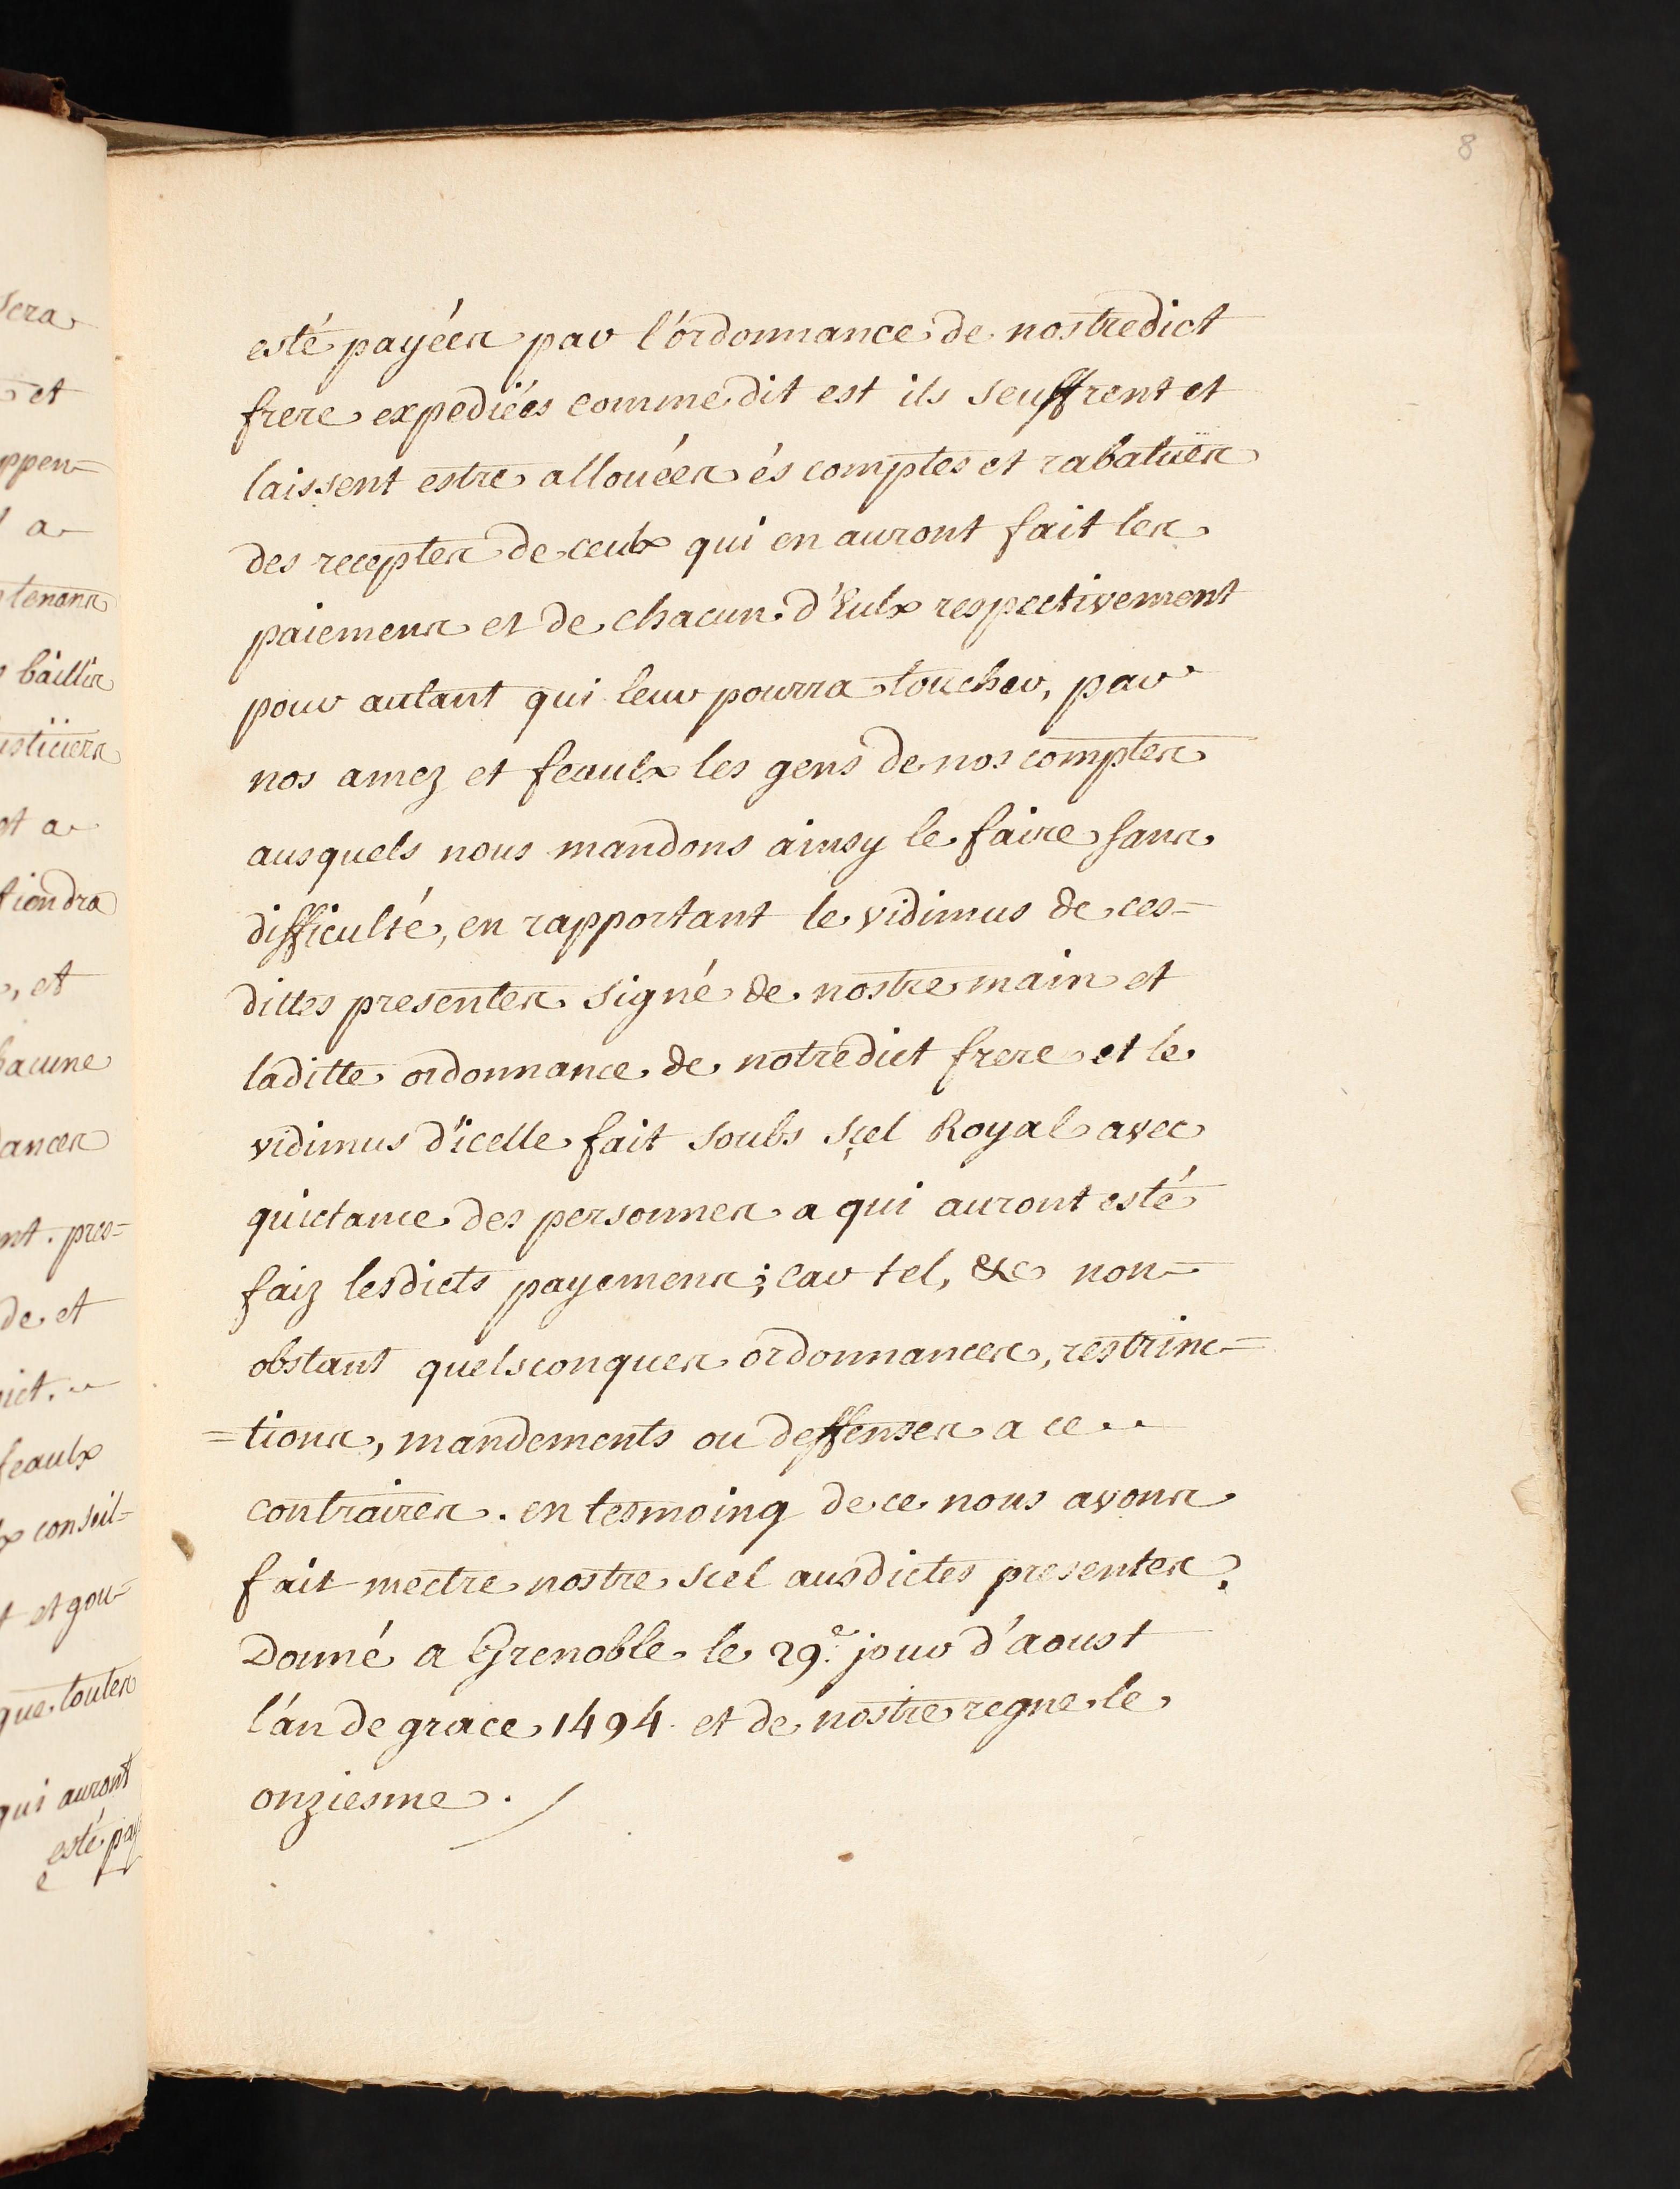 8
esté payées par l'ordonnance de nostredict
frere expediées comme dit est ils seuffrent et
laissent estre allouées és comptes et rabatues
des receptes de ceulx qui en auront fait les
paiemens et de chacun d'Eulx respectivement
pour autant qui leur pourra toucher, par
nos amez et feaulx les gens de nos comptes
ausquels nous mandons ainsy le faire sans
difficulté, en rapportant le vidimus de ces=
dittes presentes signé de nostre main et
laditte ordonnance de notredict frere et le
vidimus d'icelle fait soubs scel Royal avec
quictance des personnes a qui auront esté
faiz lesdicts payemens; car tel, &c non=
obstant quelsconques ordonnances, restrinc=
=tions, mandements ou deffenses a ce
contraires. en tesmoing de ce nous avons
fait mectre nostre scel ausdictes presentes.
Donné a Grenoble le 29e. jour d'aoust
l'an de grace 1494. et de nostre regne le
onziesme.
sera
et
ppen=
a
tenans
bailli
usticiers
et a
tiendra
, et
hacune
dances
nt. pres=
de et
ict.
feaulx
x conseil=
t et gou=
que toutes
qui auront
esté pay